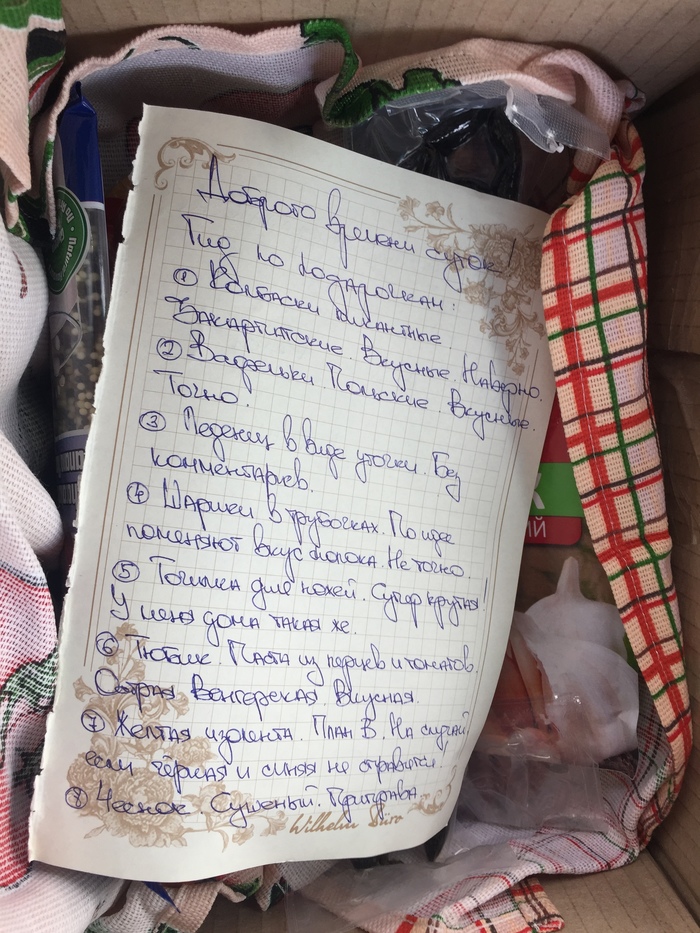 Доброго времени суток!
Гид по подарочкам:
① Колбаски пикантные.
Закарпатские. Вкусные. Наверно.
② Вафельки Польские. Вкусные.
Точно.
③ Леденец в виде уточки. Без
комментариев.
④ Шарики в трубочках. По идее
поменяют вкус молока. Не точно.
⑤ Точилка для ножей. Супер крутая!
У меня дома такая же.
⑥ Тюбик. Паста из перцев и томатов.
Острая Венгерская. Вкусная.
⑦ Желтая изолента. План В. На случай
если чёрная и синяя не справится.
⑧ Чеснок. Сушеный. Приправа
Wilhelm Büro
ИЙ